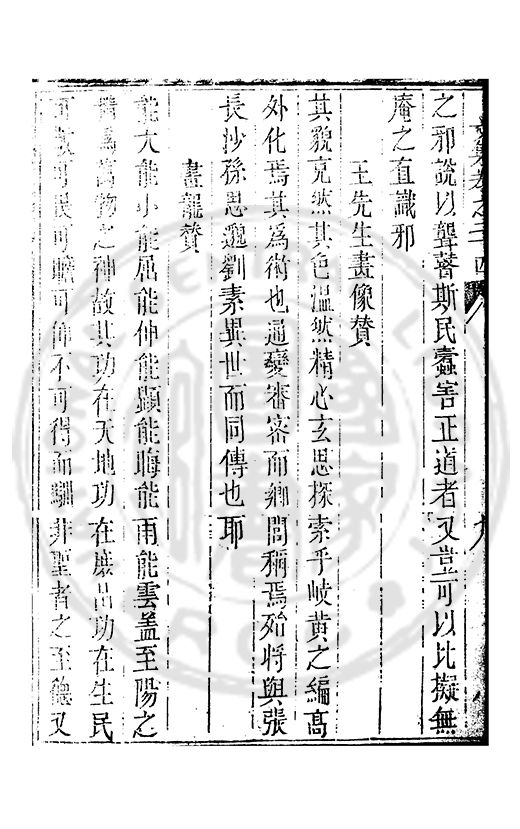 文集卷之二十四
九
之邪說以聾瞽斯民蠹害正道者又豈可以比擬無
庵之直識邪
王先生畫像贊
其貌克然其色溫然精心玄思探索乎岐黃之編高
外化焉其為術也通變審密而鄉閭稱焉殆將與張
長沙孫思邈劉素異世而同傳也耶
畫龍贊
能大能小能屈能伸能顯能晦能雨能雲蓋至陽之
精為萬物之神故其功在天地功在穰品功在生民
可敬可畏可瞻可仰不可得而馴非聖者之至德又